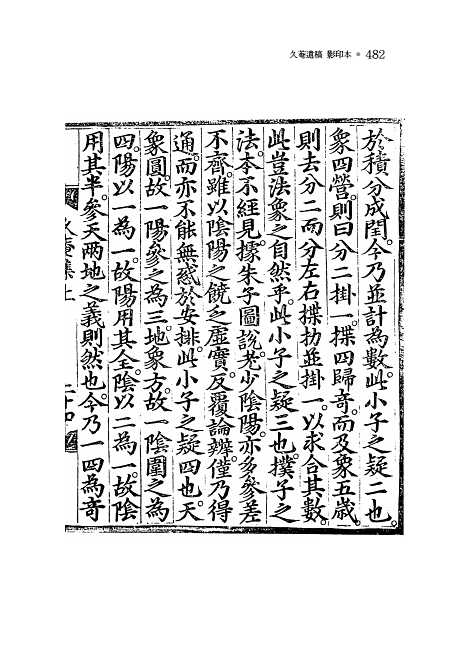 久菴遺稿 影印本 • 482
於積分成閏。今乃並計為數。此小子之疑二也。
象四營。則曰分二掛一。揲四歸奇。而及象五歲。
則去分二而分左右揲扐並掛一。以求合其數。
此豈法象之自然乎。此小子之疑三也。撲子之
法。本不經見。據朱子圖說。老少陰陽。亦多參差
不齊。雖以陰陽之饒乏虛實。反覆論辨。僅乃得
通。而亦不能無惑於安排。此小子之疑四也。天
象圓。故一陽參之為三。地象方。故一陰圍之為
四。陽以一為一。故陽用其全。陰以二為一。故陰
用其半。參天兩地之義則然也。今乃一四為奇